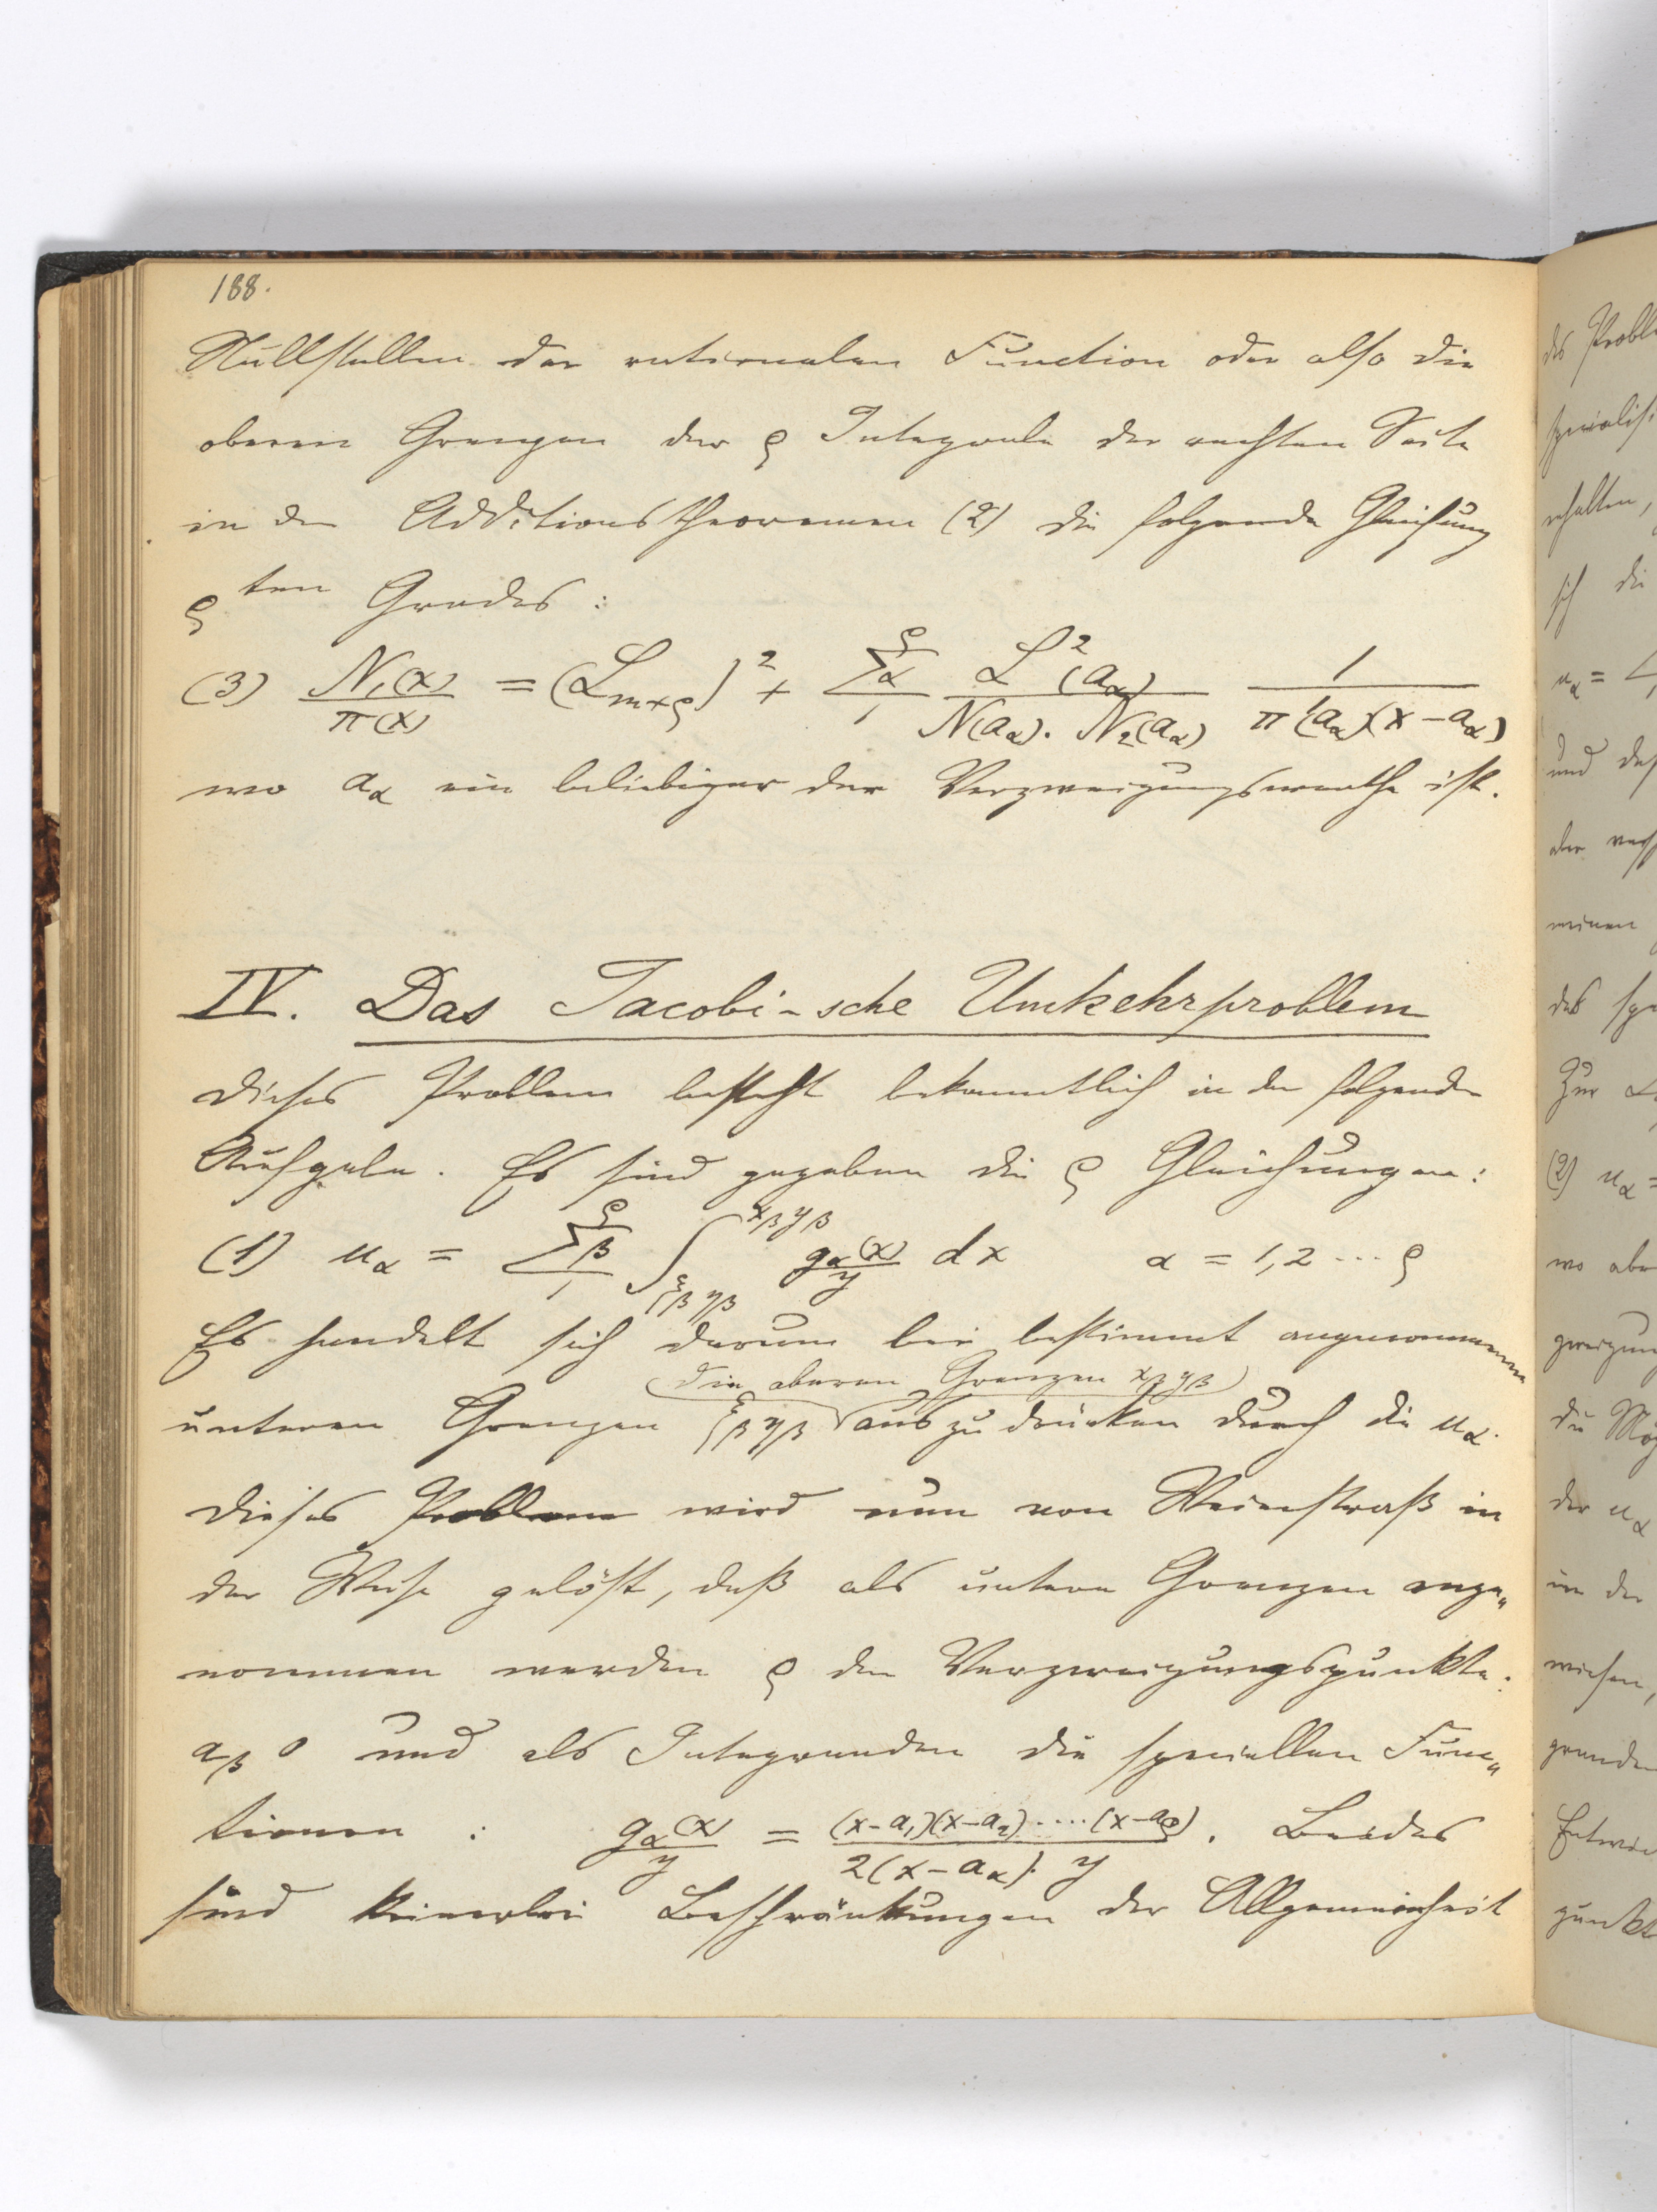 188.
Nullstellen der rationalen Function oder also die
oberen Grenzen der ϱ Integrale der rechten Seite
in den Additionstheoremen (2) die folgende Gleichung
ϱten Grades:
(3) N₁(x)/π(x) = (L_{m+ϱ})² + Σ_α₁^ϱ L²(a_α)/(N(a_α)·N₂(a_α)) 1/(π'(a_α)(x-a_α))
wo a_α ein beliebiger der Verzweigungswerthe ist.
IV. Das Jacobi-sche Umkehrproblem
Dieses Problem besteht bekanntlich in der folgenden
Aufgabe. Es sind gegeben die ϱ Gleichungen:
(1) u_α = Σ_β₁^ϱ ∫_{ξ_β η_β}^{x_β y_β} g_α(x)/y dx α = 1,2 ... ϱ
Es handelt sich darum bei bestimmt angenommenen
die oberen Grenzen x_β y_β
unteren Grenzen ξ_β η_β auszudrücken durch die u_α.
Dieses Problem wird nun von Weierstraß in
der Weise gelöst, daß als untere Grenzen ange„
nommen werden ϱ der Verzweigungspunkte:
a_β 0 und als Integranden die speciellen Func„
tionen: g_α(x)/y = (x-a₁)(x-a₂)....(x-a_ϱ)/(2(x-a_α)·y). Beides
sind keinerlei Beschränkungen der Allgemeinheit